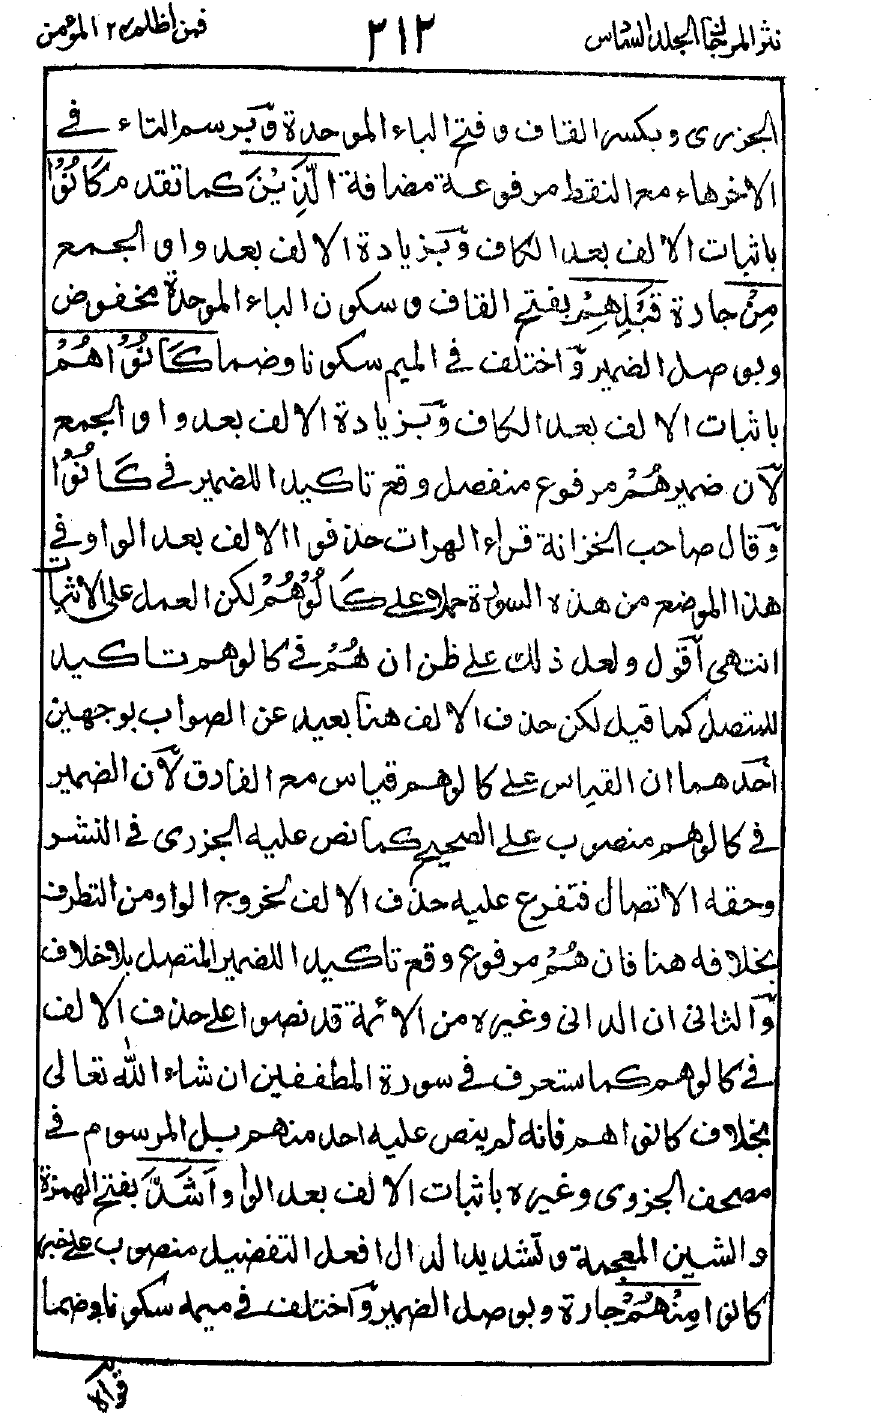 نثر المرجان الجلد السادس ٣١٢ فمن اظلم ٢٤ المؤمن
الجزرى وبكسر القاف وفتح الباء الموحدة وّبرسم التاء فى
الاخر هاء مع النقط مرفوعة مضافة الَّذِيْنَ كما تقدم كَانُوْا
باثبات الالف بعد الكاف وّبزيادة الالف بعد واو الجمع
مِنْ جارة قَبْلِهِمْ بفتح القاف وسكون الباء الموحدة مخفوض
وبوصل الضمير وّاختلف فى الميم سكونا وضما كَانُوْا هُمْ
باثبات الالف بعد الكاف وّبزيادة الالف بعد واو الجمع
لاّن ضمير هُمْ مرفوع منفصل وقع تاكيدا للضمير فى كَانُوْا
وّقال صاحب الخزانة قراء الهرات حذفوا الالف بعد الواو فى
هذا الموضع من هذه السورة حملا على كَالُوْهُمْ لكن العمل على الاثبات
انتهى اقول ولعل ذلك على ظن ان هُمْ فى كالوهم تاكيد
للمتصل كما قيل لكن حذف الالف هنا بعيد عن الصواب بوجهين
احدهما ان القياس على كالوهم قياس مع الفارق لاّن الضمير
فى كالوهم منصوب على الصحيح كما نص عليه الجزرى فى النشر
وحقه الاتصال فتفرع عليه حذف الالف لخروج الواو من التطرف
بخلافه هنا فان هُمْ مرفوع وقع تاكيدا للضمير المتصل بلا خلاف
وّالثانى ان الدانى وغيره من الائمة قد نصوا على حذف الالف
فى كالوهم كما ستعرف فى سورة المطففين ان شاء الله تعالى
بخلاف كانوا هم فانه لم ينص عليه احد منهم بل المرسوم فى
مصحف الجزرى وغيره باثبات الالف بعد الواو اَشَدَّ بفتح الهمزة
والشين المعجمة وتشديد الدال افعل التفضيل منصوب على خبر
كانوا مِنْهُمْ جارة وبوصل الضمير وّاختلف فى ميمه سكونا وضما
قوله